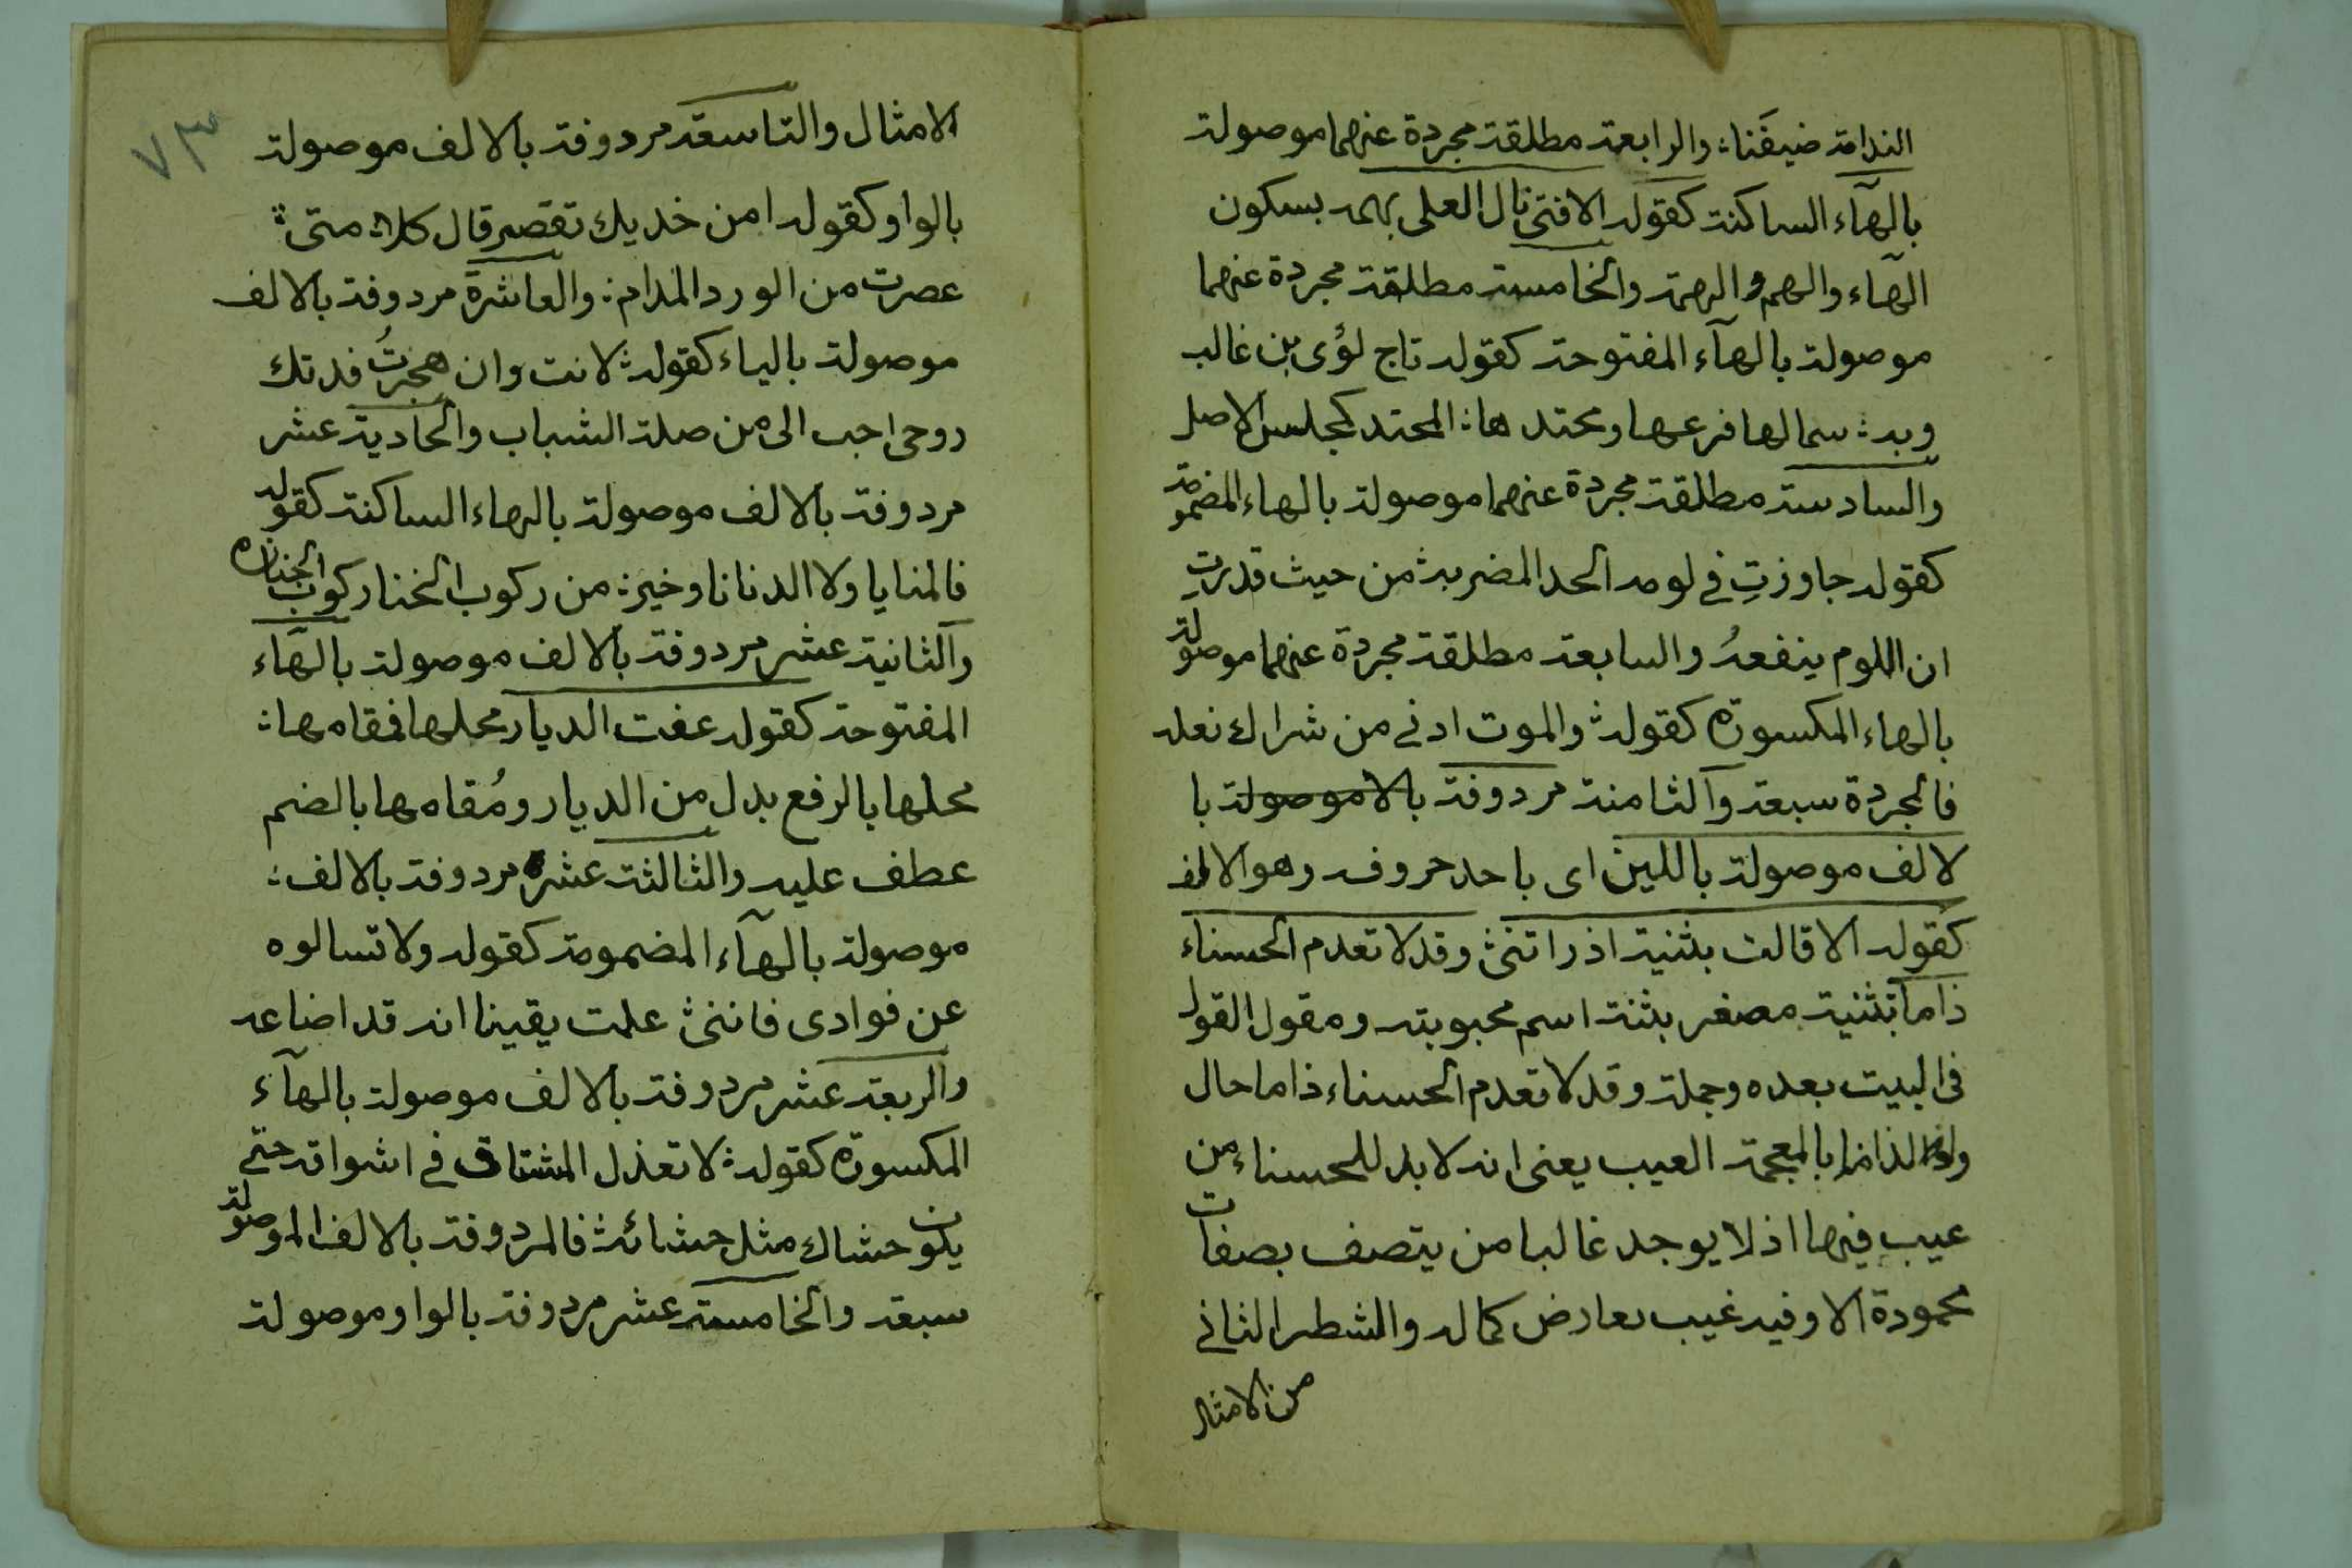 الندامة ضيفَنا: والرابعة مطلقة مجردة عنهما موصولة
بالهآء الساكنة كقوله الا فتى نال العلى بهمه بسكون
الهآء والهم والهمة والخامسة مطلقة مجردة عنهما
موصولة بالهآء المفتوحة كقوله تاج لؤى بن غالب
وبه: سما لها فرعها ومحتدها: المحتد كمجلس الاصل
والسادسة مطلقة مجردة عنهما موصولة بالهاء المضمومة
كقوله جاوزتِ في لومه الحد المضر به: من حيث قدرتِ
ان اللوم ينفعهُ والسابعة مطلقة مجردة عنهما موصولة
بالهاء المكسورة كقوله: والموت ادنى من شراك نعله
فالمجردة سبعة وآلثامنة مردوفة بالا موصولة با
لالف موصولة باللين اى باحد حروف وهو الالف
كقوله الا قالت بثنية اذ راتنى: وقد لا تعدم الحسناء
ذاما بثنية مصغر بثنة اسم محبوبته ومقول القول
فى البيت بعده وجملة وقد لا تعدم الحسناء ذاما حال
والذام بالمعجمة العيب يعنى انه لا بد للحسناء من
عيب فيها اذ لا يوجد غالبا من يتصف بصفات
محمودة الا وفيه عيب يعارض كماله والشطر الثانى
من الامثال
٧٣
الامثال والتاسعة مردوفة بالالف موصولة
بالواو كقوله امن خديك تقصر قال كلا: متى:
عصرت من الورد المدام: والعاشرة مردوفة بالالف
موصولة بالياء كقوله: لانت وان هجرتُ فدتك
روحى احب الى من صلة الشباب والحادية عشر
مردوفة بالالف موصولة بالهاء الساكنة كقوله
فالمنايا ولا الدنايا وخير: من ركوب الخنا ركوب الجنازه
وآلثانية عشر مردوفة بالالف موصولة بالهآء
المفتوحة كقوله عفت الديار محلها فمقامها:
محلها بالرفع بدل من الديار ومُقامها بالضم
عطف عليه والثالثة عشر مردوفة بالالف:
موصولة بالهآء المضمومة كقوله ولا تسالوه
عن فوادى فاننى: علمت يقينا انه قد اضاعه
والربعة عشر مردوفة بالالف موصولة بالهآء
المكسورة كقوله: لا تعذل المشتاق في اشواقه حتى
يكون حشاك مثل حشائه: فالمردوفة بالالف الموصولة
سبعة والخامسة عشر مردوفة بالواو موصولة